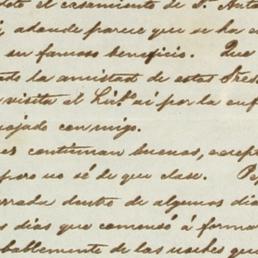 el casamiento de
, adonde parece que se ha
en famoso beneficio. Que
la amistad de estos Tres
visita el Lic.º ai por la
enojado conmigo.
es continuan buenos,
pero no sé de que clase.
dentro de algunos dias
dias que comensó á
probablemente de las noches que